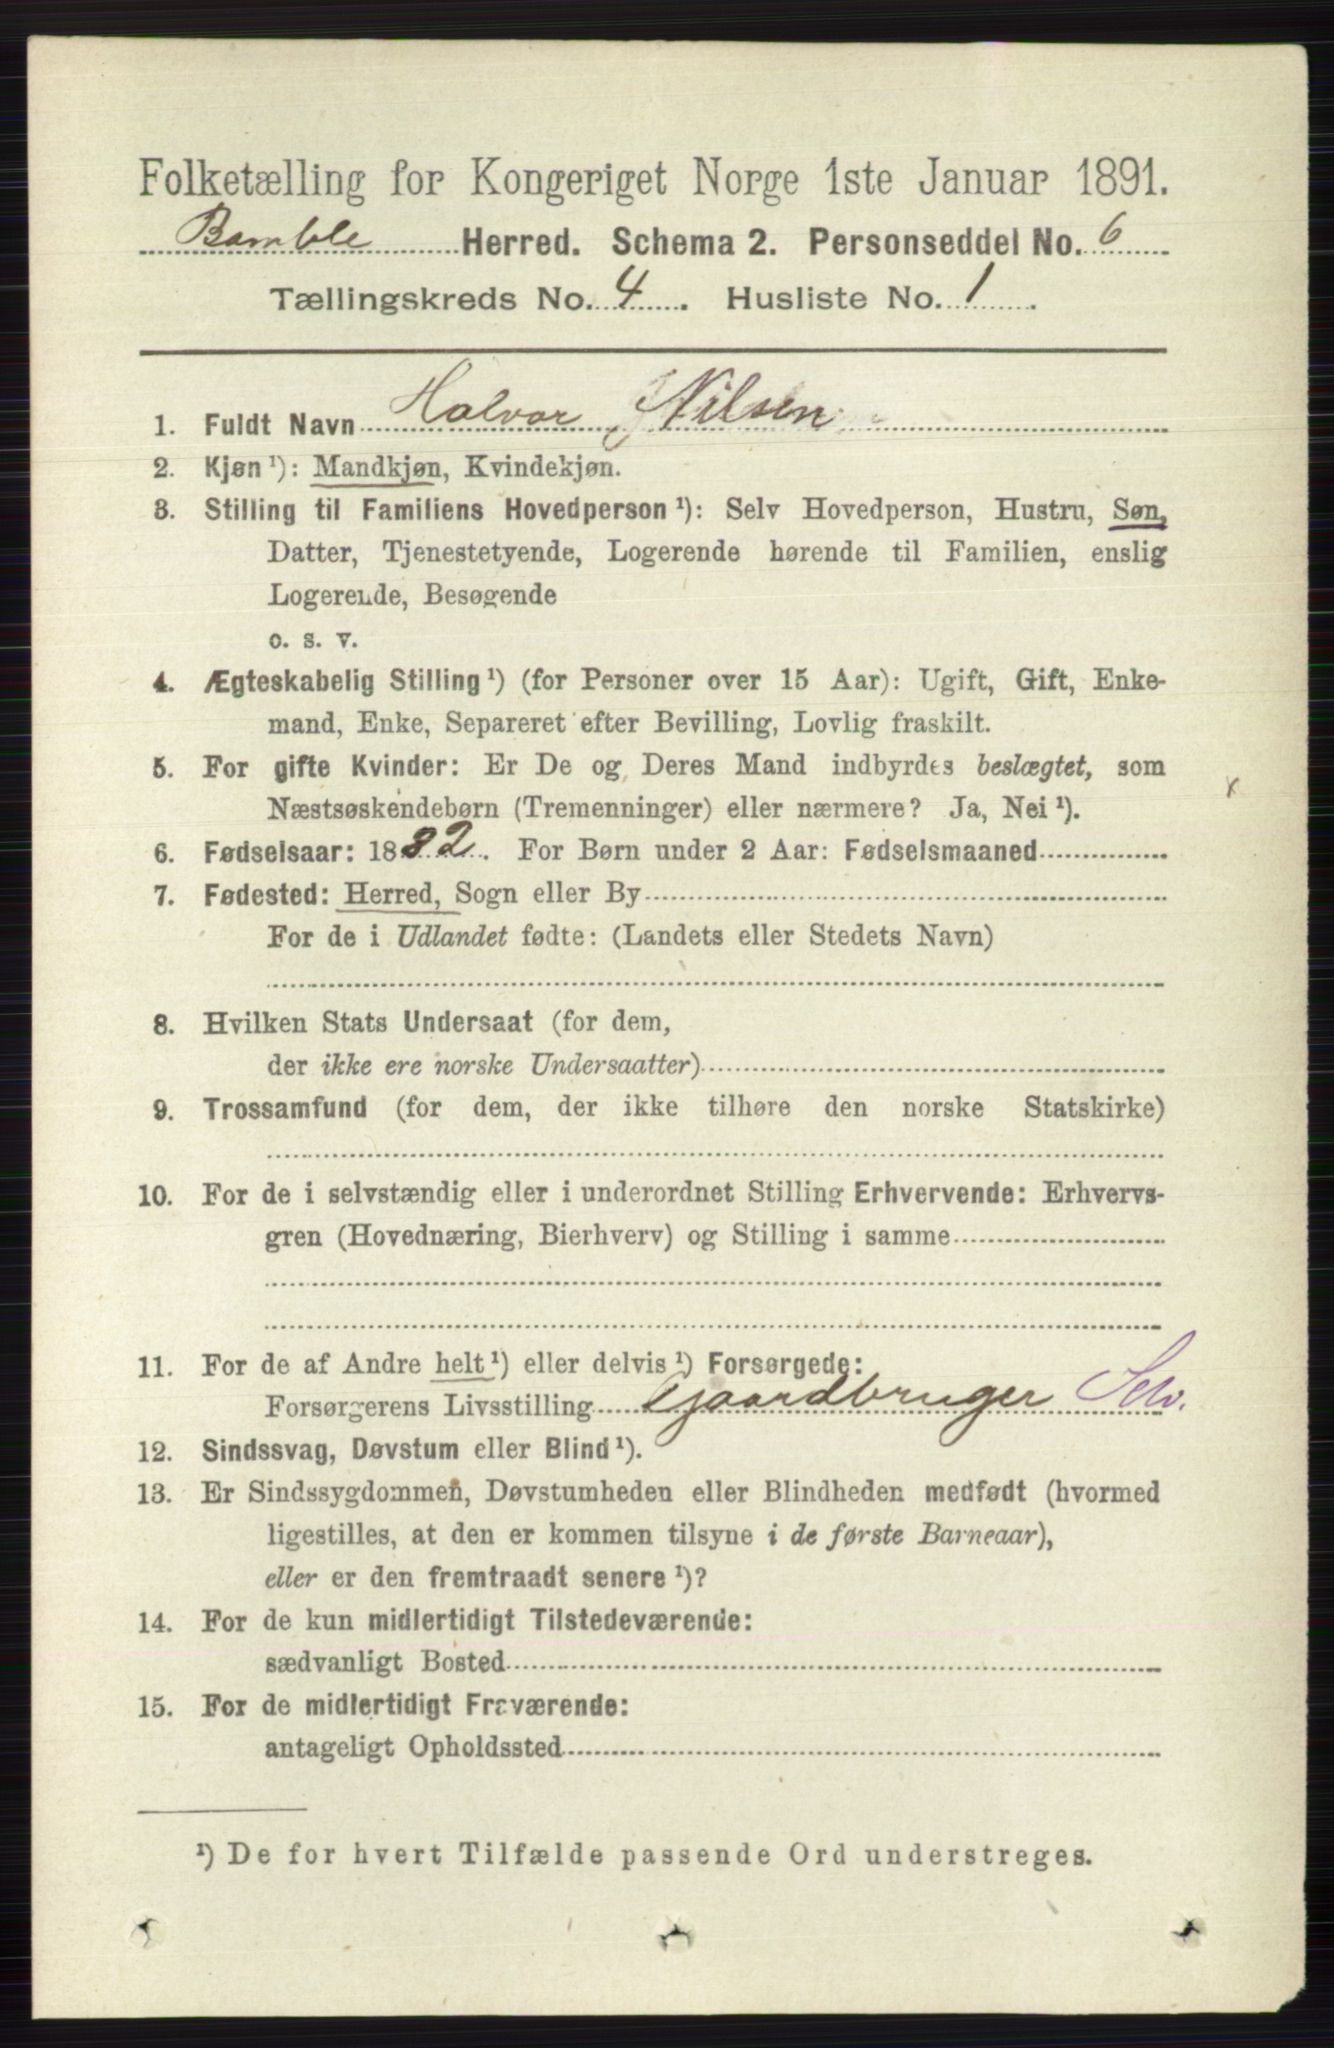 Folketælling for Kongeriget Norge 1ste Januar 1891.
Bamble Herred. Schema 2. Personseddel No. 6
Tællingskreds No. 4. Husliste No. 1.
1. Fuldt Navn Halvor Nilsen
2. Kjøn ¹): Mandkjøn, Kvindekjøn.
3. Stilling til Familiens Hovedperson ¹): Selv Hovedperson, Hustru, Søn,
Datter, Tjenestetyende, Logerende hørende til Familien, enslig
Logerende, Besøgende
o. s. v.
4. Ægteskabelig Stilling ¹) (for Personer over 15 Aar): Ugift, Gift, Enke-
mand, Enke, Separeret efter Bevilling, Lovlig fraskilt.
5. For gifte Kvinder: Er De og Deres Mand indbyrdes beslægtet, som
Næstsøskendebørn (Tremenninger) eller nærmere? Ja, Nei ¹).
6. Fødselsaar: 1882. For Børn under 2 Aar: Fødselsmaaned
7. Fødested: Herred, Sogn eller By
For de i Udlandet fødte: (Landets eller Stedets Navn)
8. Hvilken Stats Undersaat (for dem,
der ikke ere norske Undersaatter)
9. Trossamfund (for dem, der ikke tilhøre den norske Statskirke)
10. For de i selvstændig eller i underordnet Stilling Erhvervende: Erhvervs-
gren (Hovednæring, Bierhverv) og Stilling i samme
11. For de af Andre helt ¹) eller delvis ¹) Forsørgede:
Forsørgerens Livsstilling Gjaardbruger Selv.
12. Sindssvag, Døvstum eller Blind ¹).
13. Er Sindssygdommen, Døvstumheden eller Blindheden medfødt (hvormed
ligestilles, at den er kommen tilsyne i de første Barneaar),
eller er den fremtraadt senere ¹)?
14. For de kun midlertidigt Tilstedeværende:
sædvanligt Bosted
15. For de midlertidigt Fraværende:
antageligt Opholdssted
¹) De for hvert Tilfælde passende Ord understreges.